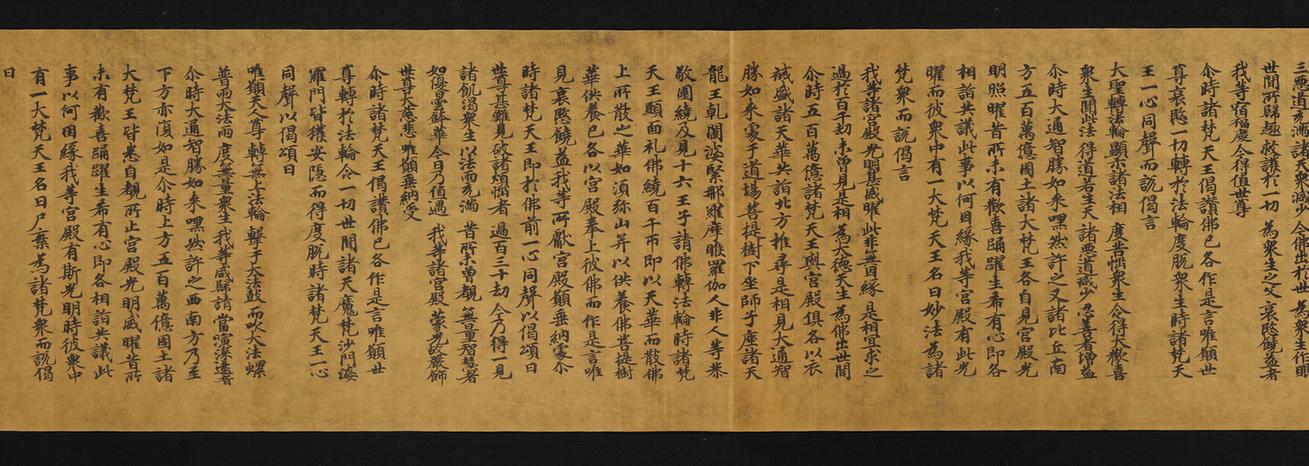 三惡道充滿諸天衆減少今佛出於世 為衆生作眼
世間所歸趣救護於一切 為衆生之父哀愍饒益者
我等宿福慶今得值世尊
尒時諸梵天王偈讚佛已各作是言唯願世
尊哀愍一切轉於法輪度脫衆生時諸梵天
王一心同聲而說偈言
大聖轉法輪顯示諸法相 度苦惱衆生令得大歡喜
衆生聞此法得道若生天諸惡道減少 忍善者增益
尒時大通智勝如來嘿然許之又諸比丘南
方五百萬億國土諸大梵王各自見宮殿光
明照曜昔所未有歡喜踊躍生希有心即各
相詣共議此事以何因緣我等宮殿有此光
曜而彼衆中有一大梵天王名曰妙法為諸
梵衆而說偈言
我等諸宮殿光明甚威曜此非無因緣 是相宜求之
過於百千劫未曾見是相 為大德天生為佛出世間
尒時五百萬億諸梵天王與宮殿俱各以衣
祴盛諸天華共詣北方推尋是相見大通智
勝如來處于道場菩提樹下坐師子座諸天
龍王乹闥婆緊那羅摩睺羅伽人非人等恭
敬圍繞及見十六王子請佛轉法輪時諸梵
天王頭面礼佛繞百千帀即以天華而散佛
上所散之華如湏弥山并以供養佛菩提樹
華供養已各以宮殿奉上彼佛而作是言唯
見哀愍饒益我等所獻宮殿願垂納處尒
時諸梵天王即於佛前一心同聲以偈頌曰
世尊甚難見破諸煩惱者 過百三十劫今乃得一見
諸飢渴衆生以法雨充滿 昔所未曾覩無量智慧者
如優曇鉢華今日乃值遇 我等諸宮殿蒙光故嚴飾
世尊大慈悲唯願垂納受
尒時諸梵天王偈讚佛已各作是言唯願世
尊轉於法輪令一切世間諸天魔梵沙門婆
羅門皆獲安隱而得度脫時諸梵天王一心
同聲以偈頌曰
唯願天人尊轉無上法輪 擊于大法鼓而吹大法螺
普雨大法雨度無量衆生我等咸歸請 當演深遠音
尒時大通智勝如來嘿然許之西南方乃至
下方亦復如是尒時上方五百萬億國土諸
大梵王皆悉自覩所止宮殿光明威曜昔所
未有歡喜踊躍生希有心即各相詣共議此
事以何因緣我等宮殿有斯光明時彼衆中
有一大梵天王名曰尸棄為諸梵衆而說偈
曰